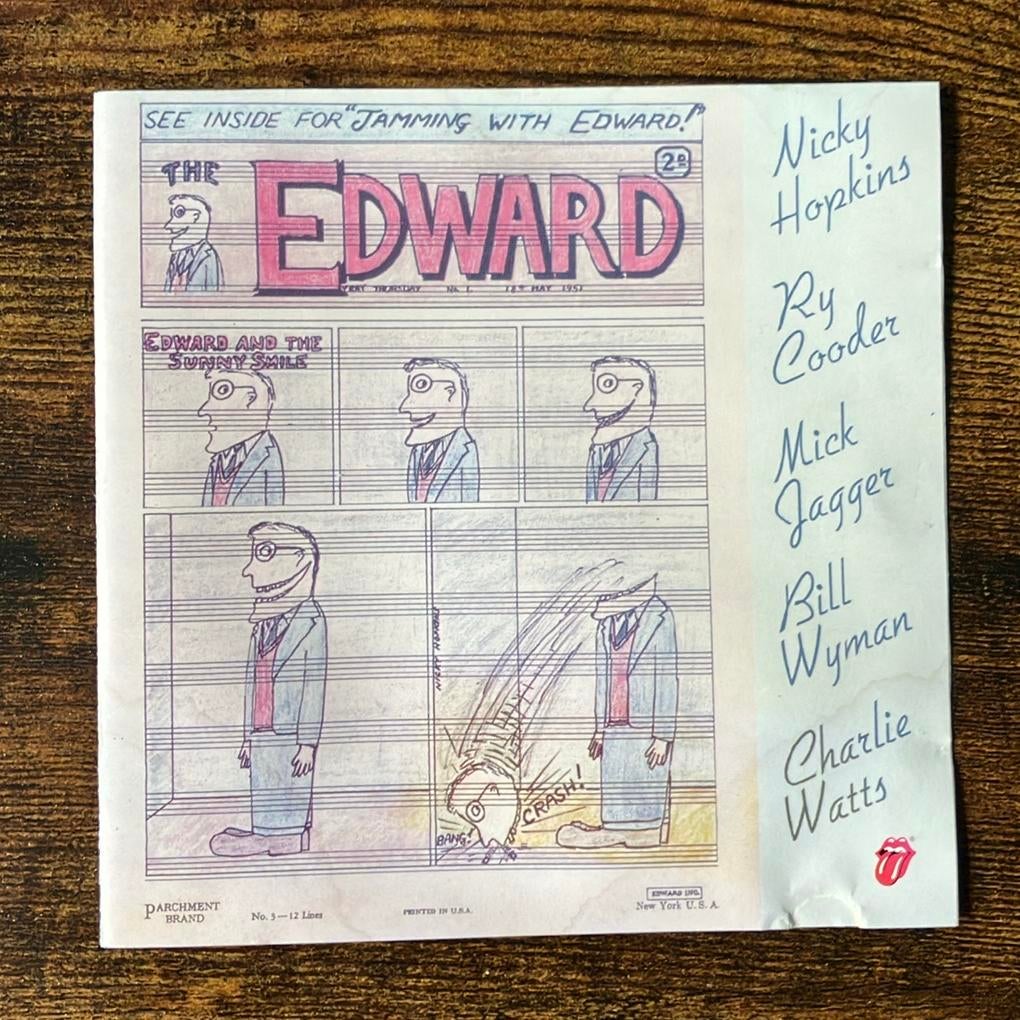 SEE INSIDE FOR "JAMMING WITH EDWARD!"
THE
EDWARD
2D
EVERY THURSDAY No 1. 18TH MAY 1951
EDWARD AND THE
SUNNY SMILE
NICKY HOPKINS
BANG!
CRASH!
PARCHMENT
BRAND
No. 3—12 Lines
PRINTED IN U.S.A.
EDWARD INC.
New York U.S.A.
Nicky
Hopkins
Ry
Cooder
Mick
Jagger
Bill
Wyman
Charlie
Watts